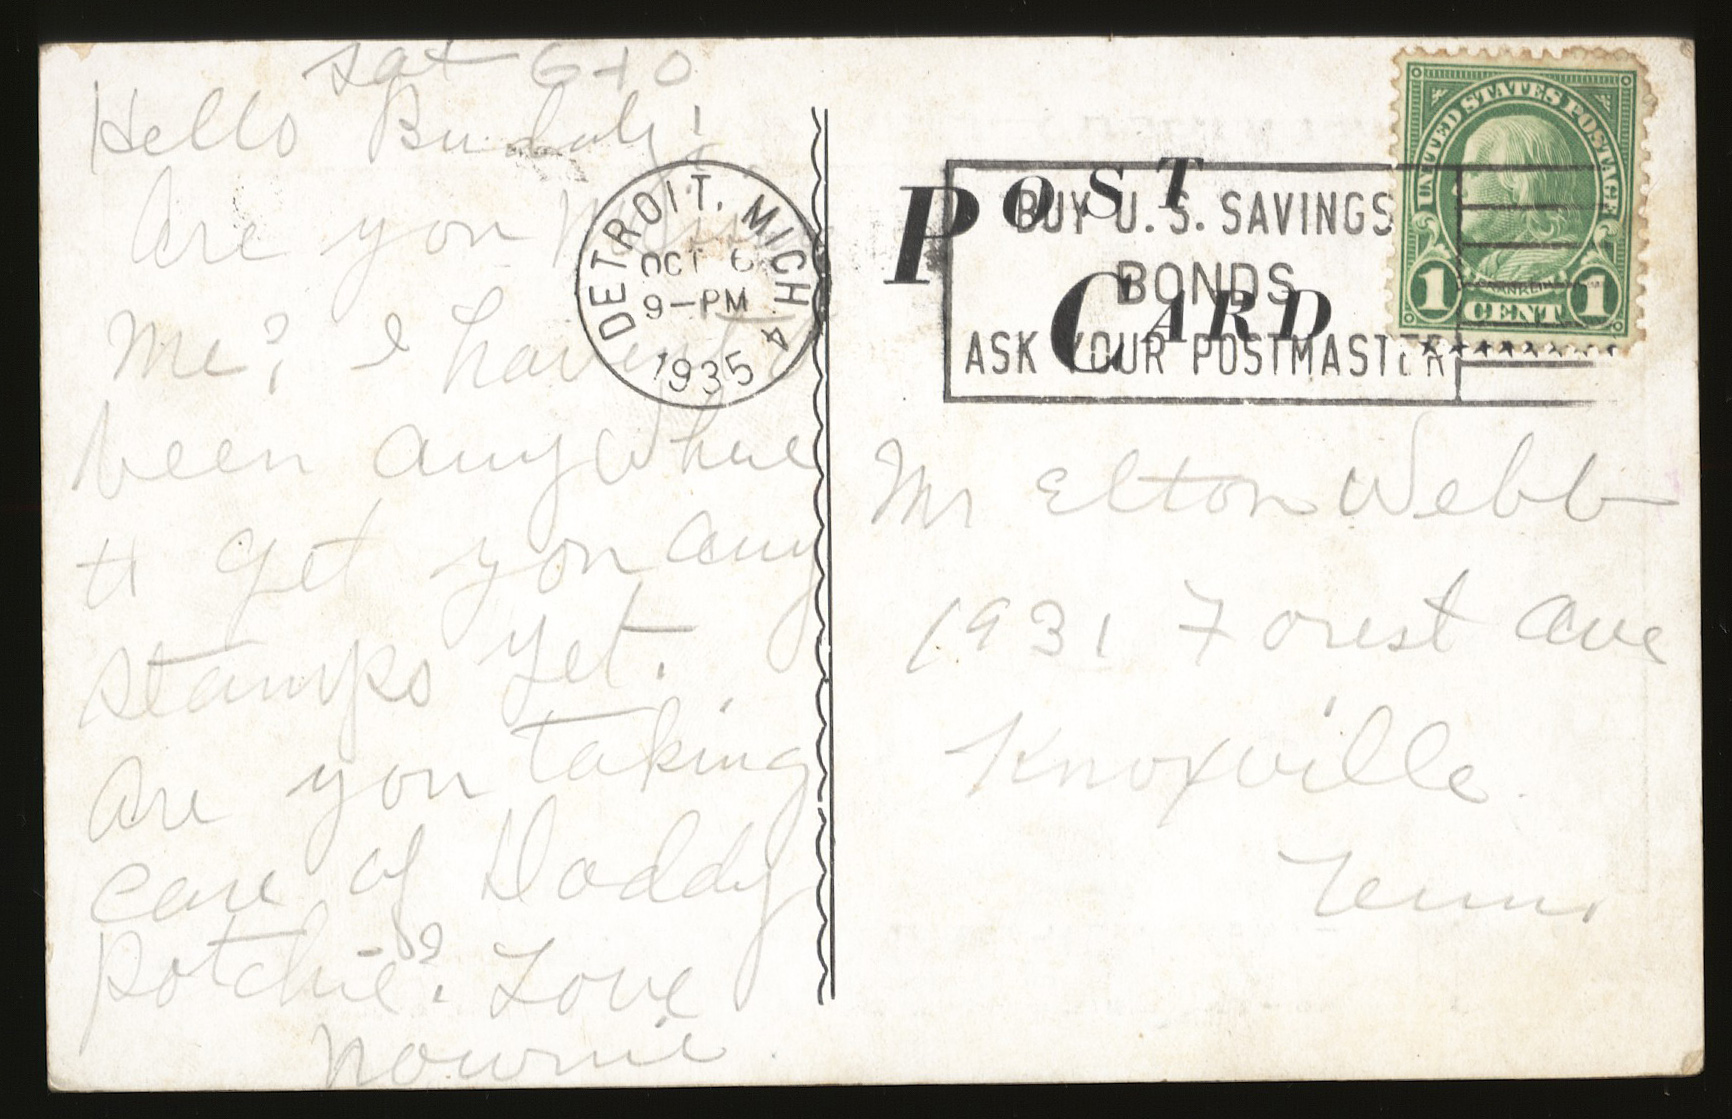 Sat 6-10
Hello Buddy!
Are you
Me? I haven't
been anywhere
to get you any
stamps yet.
Are you taking
care of Daddy
Potchie? Love
DETROIT, MICH.
OCT 6
9-PM
1935
4
POST
CARD
BUY U.S. SAVINGS
BONDS
ASK YOUR POSTMASTER
UNITED STATES POSTAGE
FRANKLIN
1 CENT 1
Mr Elton Webb
1931 Forest Ave
Knoxville
Tenn.